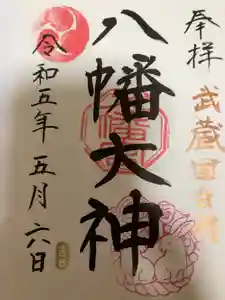 奉拝
武蔵国分
八幡大神
令和五年五月六日